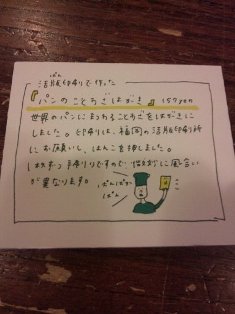 活版印刷で作った
『パンのことわざはがき』 157yen
世界のパンにまつわることわざをはがきに
しました。印刷は、福岡の活版印刷所
にお願いし、はんこを押しました。
1枚ずつ手刷りですので、微妙に風合い
が異なります。
ぱんぱか
ぱん